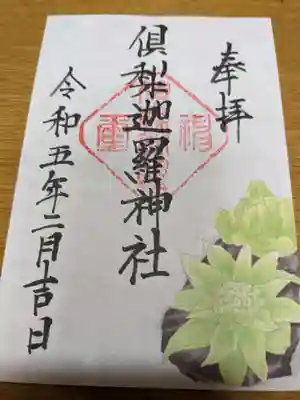 奉拝
倶梨迦羅神社
令和五年二月吉日